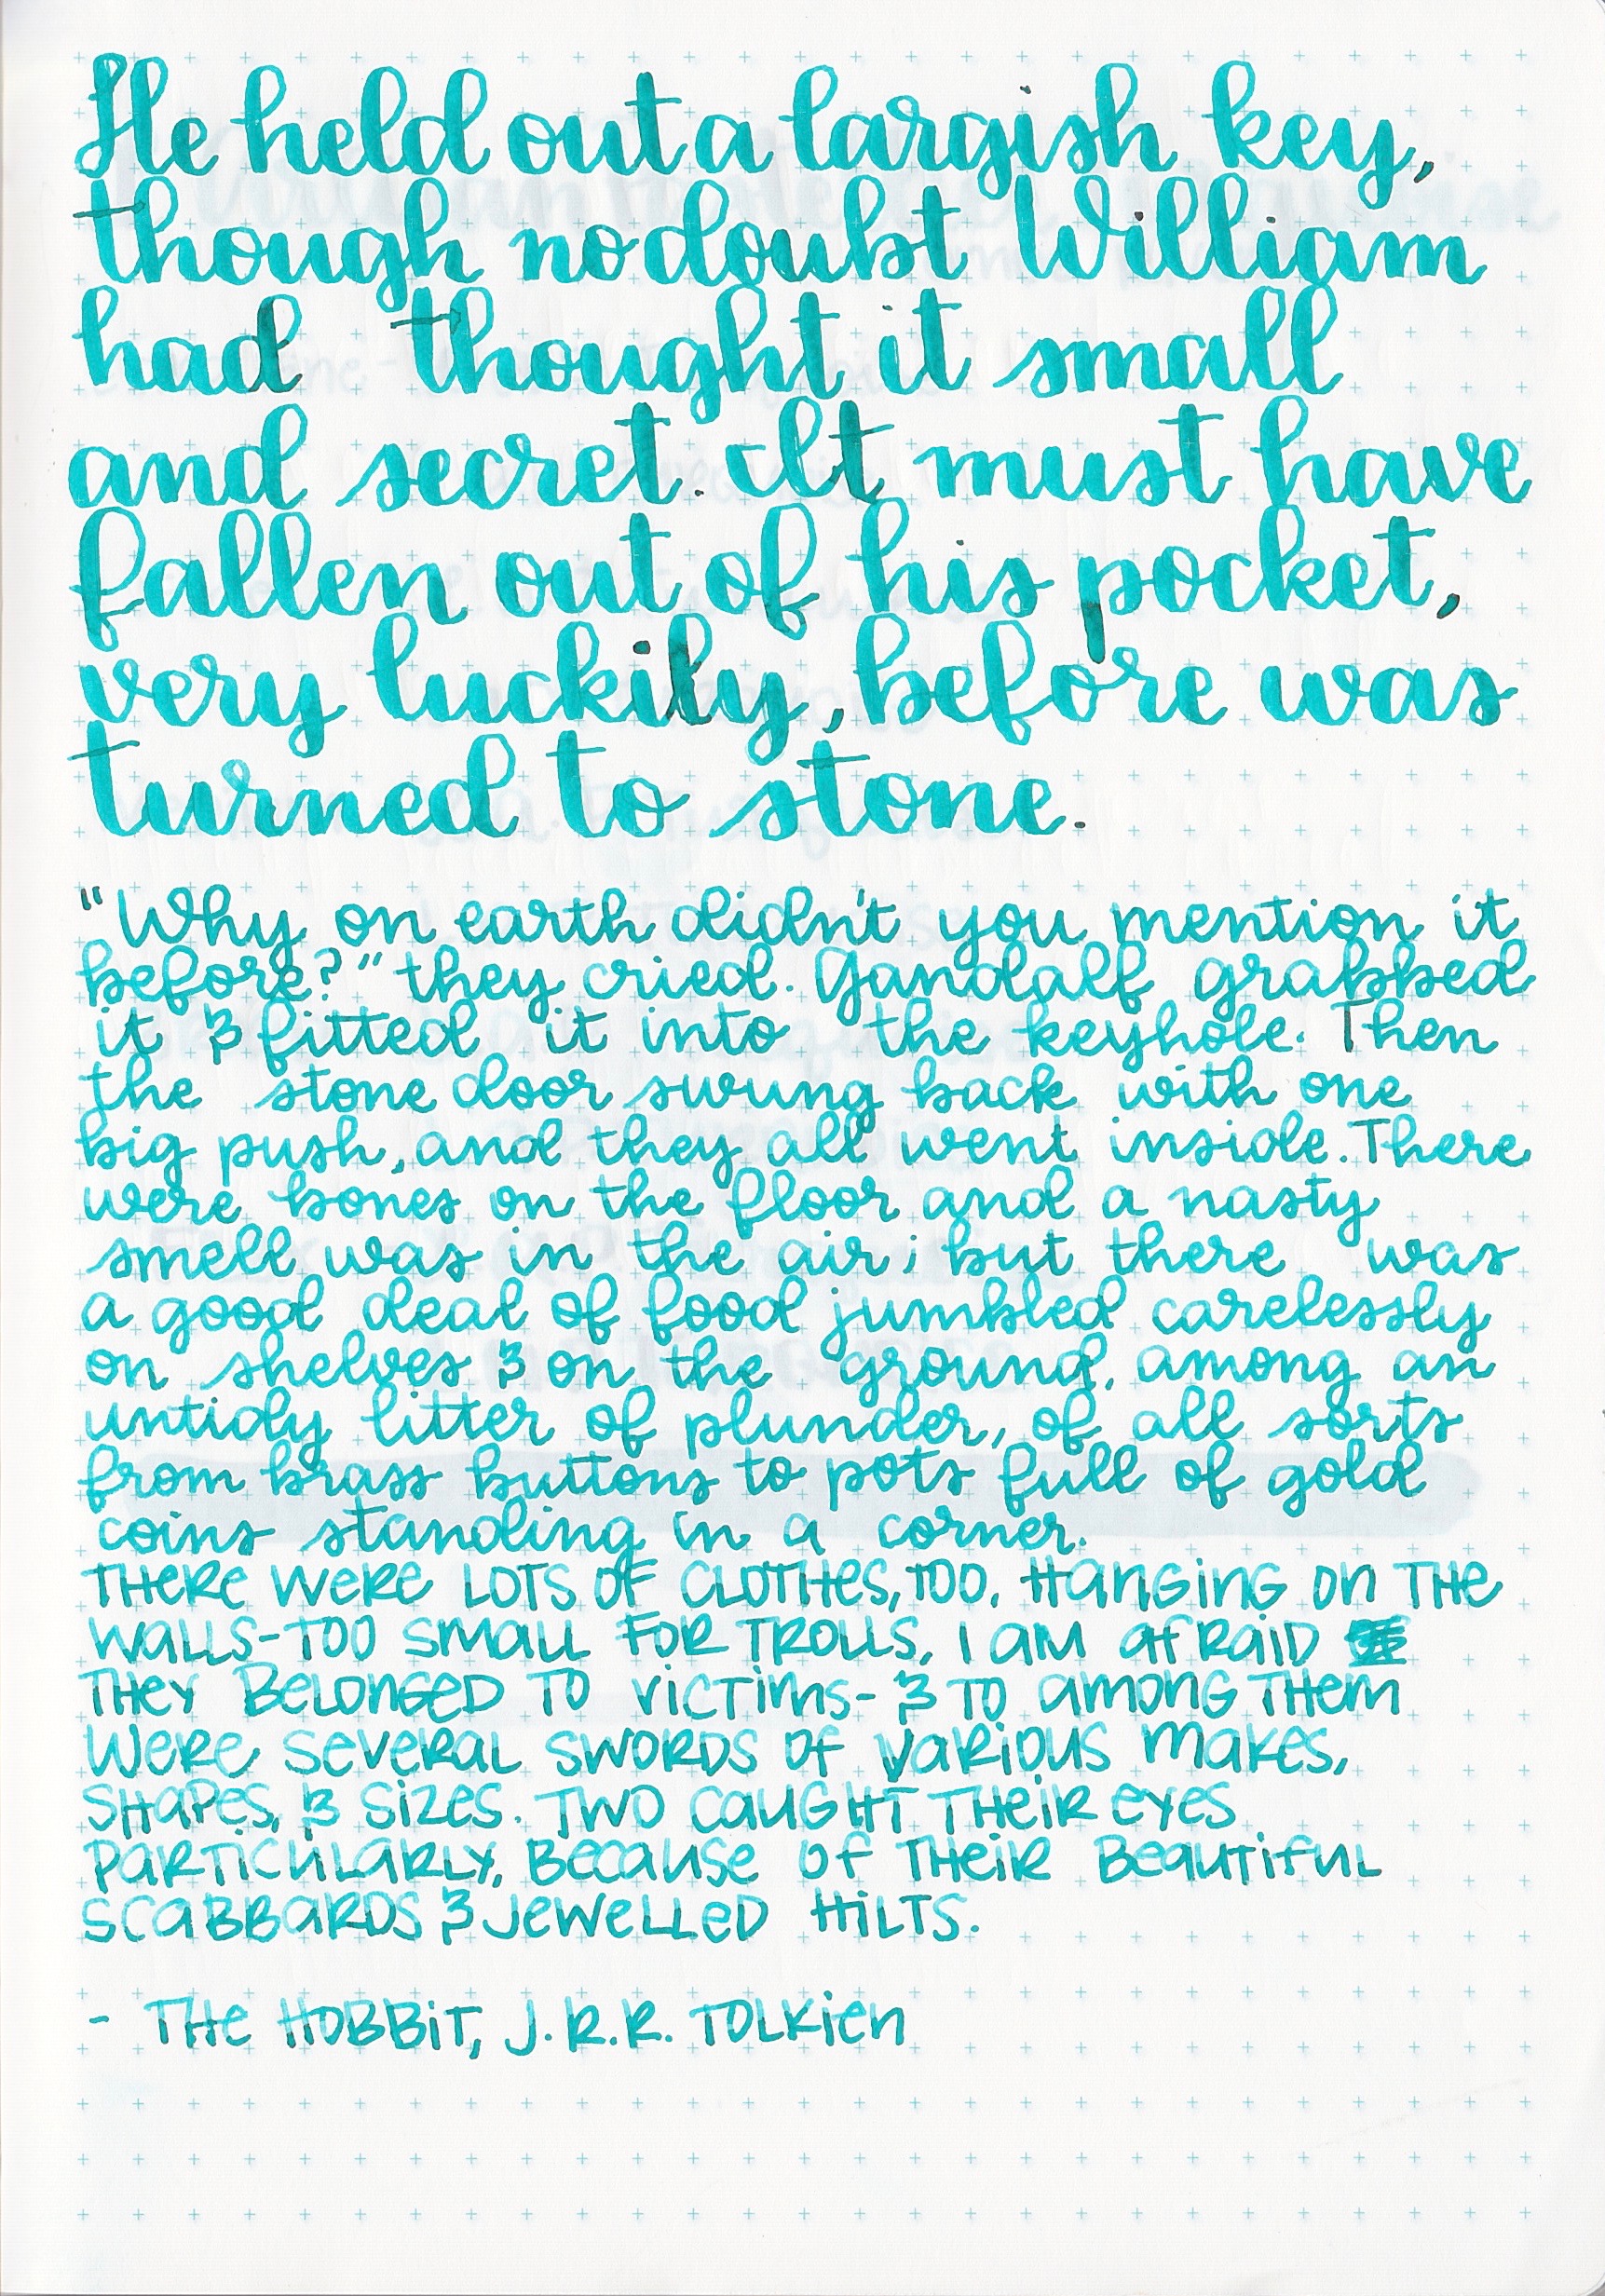 He held out a largish key,
though no doubt William
had thought it small
and secret. It must have
fallen out of his pocket,
very luckily, before was
turned to stone.
"Why on earth didn't you mention it
before?" they cried. Gandalf grabbed
it & fitted it into the keyhole. Then
the stone door swung back with one
big push, and they all went inside. There
were bones on the floor and a nasty
smell was in the air; but there was
a good deal of food jumbled carelessly
on shelves & on the ground, among an
untidy litter of plunder, of all sorts
from brass buttons to pots full of gold
coins standing in a corner.
THERE WERE LOTS OF CLOTHES, TOO, HANGING ON THE
WALLS-TOO SMALL FOR TROLLS, I AM AFRAID
THEY BELONGED TO VICTIMS- & TO AMONG THEM
WERE SEVERAL SWORDS OF VARIOUS MAKES,
SHAPES, & SIZES. TWO CAUGHT THEIR EYES
PARTICULARLY, BECAUSE OF THEIR BEAUTIFUL
SCABBARDS & JEWELLED HILTS.
- THE HOBBIT, J.R.R. TOLKIEN